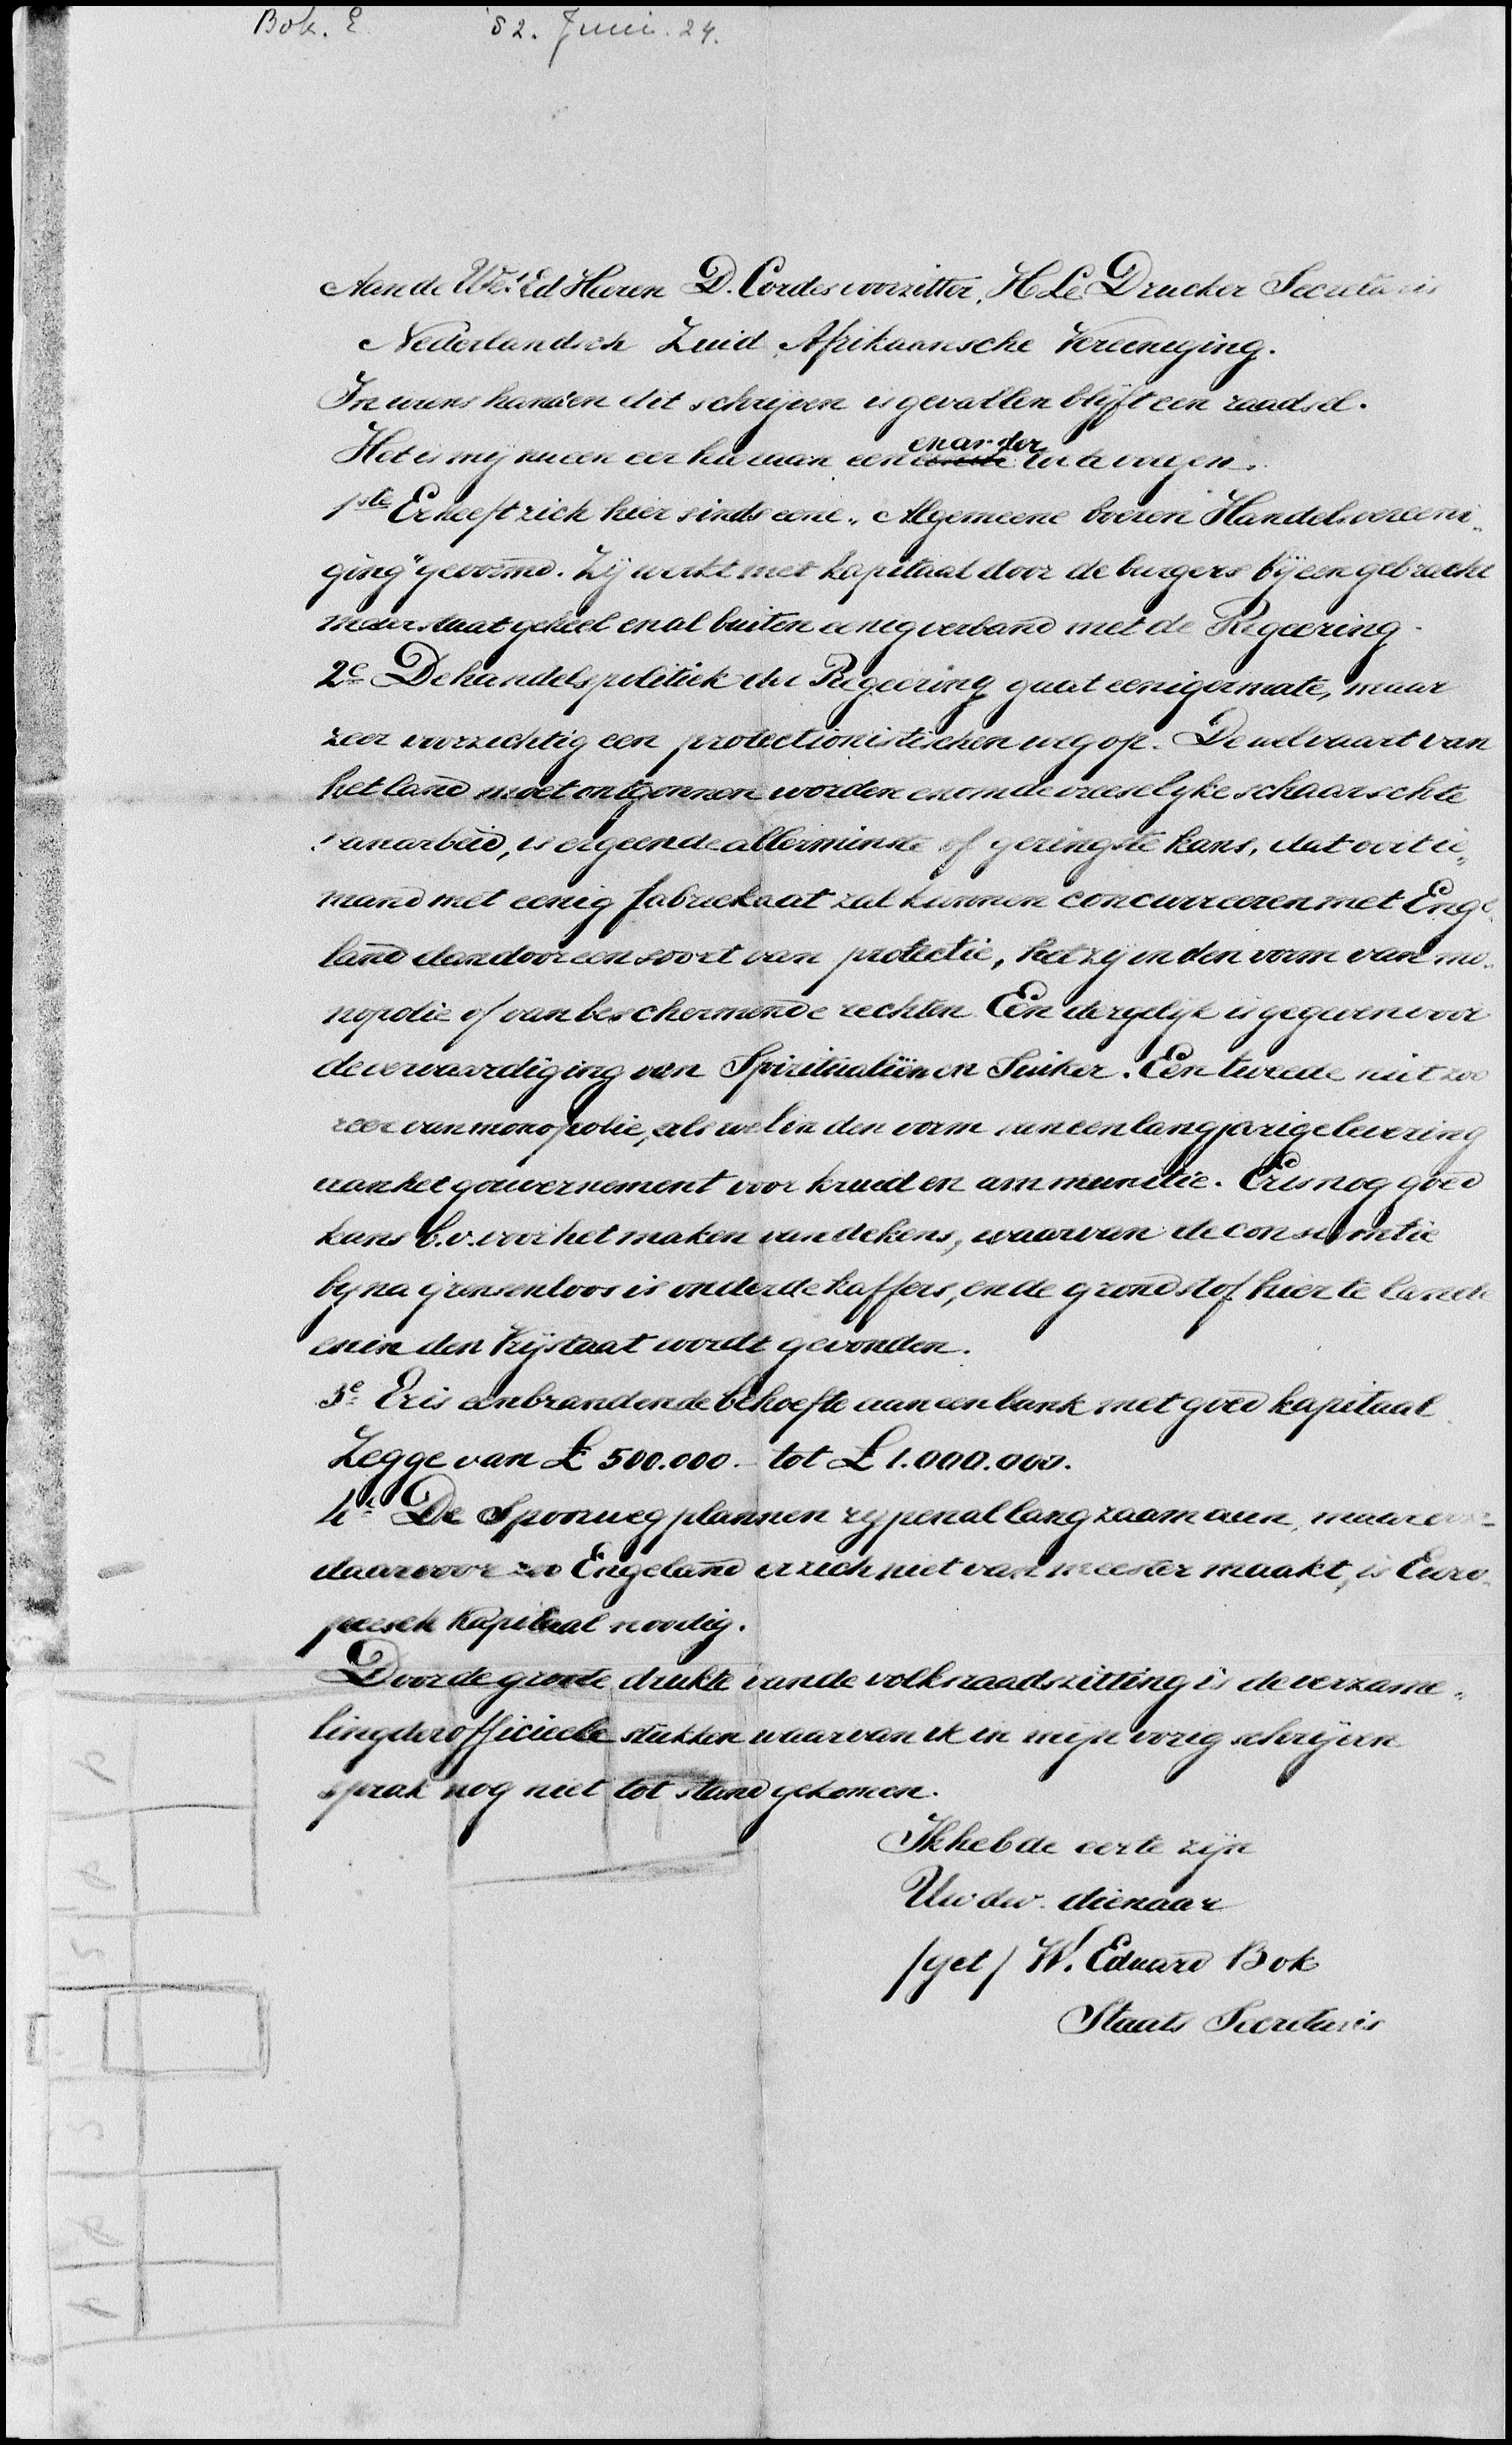 Bok. E. '82. Juni. 24.
Aan de Wel Ed Heeren D. Cordes voorzitter, H L Drucker Secretaris
Nederlandsch Zuid Afrikaansche Vereeniging.
In wiens handen dit schrijven is gevallen blijft een raadsel.
Het is mij nu een eer hieraan een en ander toe te voegen.
1ste Er heeft zich hier sinds eene „Algemeene boeren Handelsvereeni„
ging" gevormd. Zij werkt met kapitaal door de burgers bijeen gebracht
maar staat geheel en al buiten eenig verband met de Regeering.
2e Dehandelspolitiek der Regeering gaat eenigermate, maar
zeer voorzichtig een protectionistischen weg op. De welvaart van
het land moet ontgonnen worden en om de vreeselyke schaarschte
van arbeid, is er geen de allerminste of geringste kans, dat ooit ie„
mand met eenig fabriekaat zal kunnen concurreeren met Enge„
land dan door een soort van protectie, het zij in den vorm van mo„
nopolie of van beschermende rechten. Een dergelijk is gegeven voor
de vervaardiging van Spiritualiën en Suiker. Een tweede niet zoo
zeer van monopolie, als wel in den vorm van een langjarige levering
aan het gouvernement voor kruid en ammunitie. Er is nog goed
kans b.v. voor het maken van dekens, waarvan de consumtie
byna grensenloos is onder de kaffers, en de grondstof hier te lande
en in den Vrijstaat wordt gevonden.
3e Er is een brandende behoefte aan een bank met goed kapitaal
Zegge van £ 500.000.- tot £ 1.000.000.
4e De Spoorwegplannen rypen al langzaam aan, maar
daarvoor zoo Engeland er zich niet van meester maakt, is Euro„
peesch kapitaal noodig.
Door de groote drukte van de volksraadszitting is de verzame„
ling der officieele stukken waarvan ik in mijn vorig schrijven
sprak nog niet tot stand gekomen.
Ik heb de eer te zijn
Uw dw. dienaar
/get/ W. Eduard Bok
Staats Secretaris